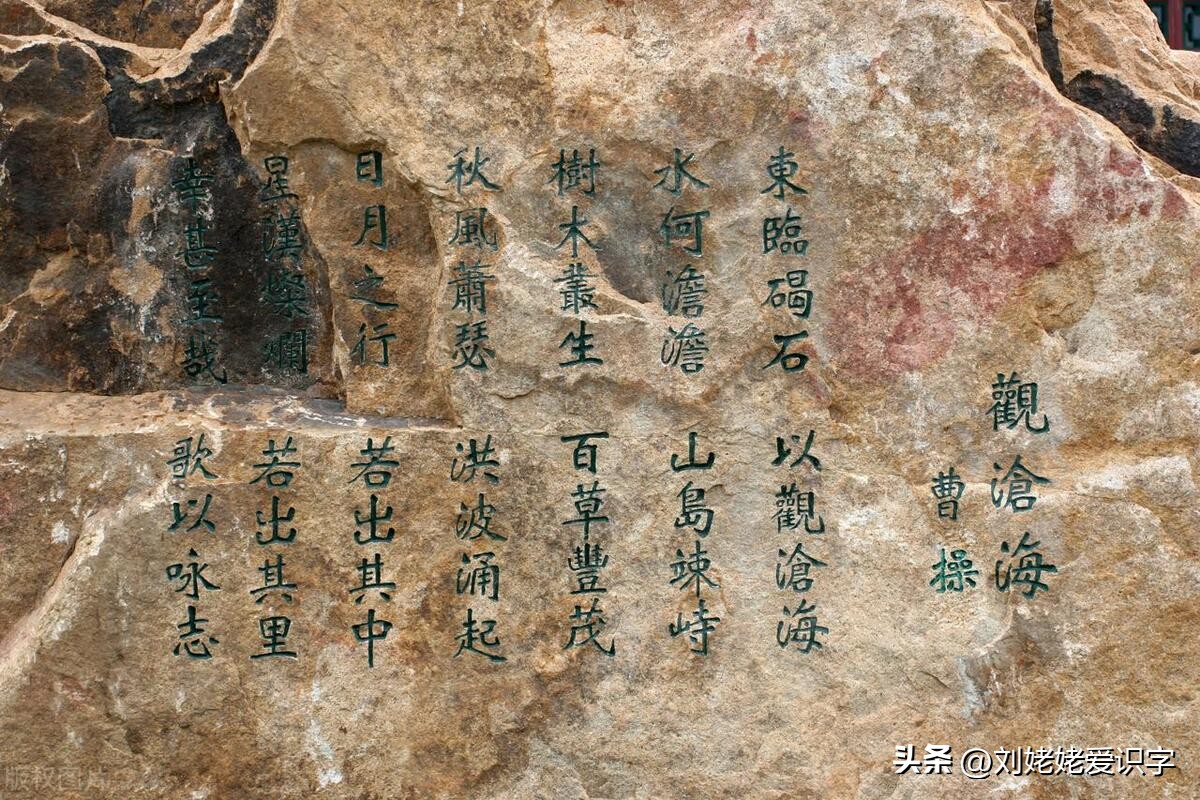 觀滄海
曹操
東臨碣石 以觀滄海
水何澹澹 山島竦峙
樹木叢生 百草豐茂
秋風蕭瑟 洪波涌起
日月之行 若出其中
星漢燦爛 若出其里
幸甚至哉 歌以咏志
头条 @刘姥姥爱识字
版权图片